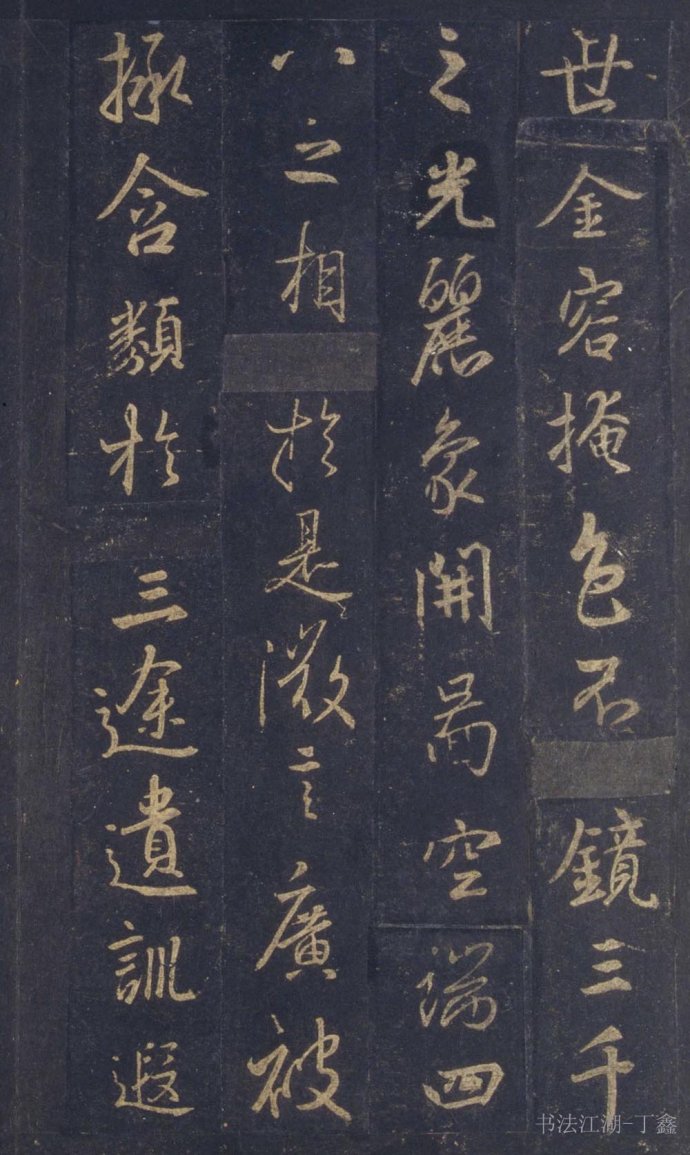 世金容掩色不鏡三千
之光麗象開啚空端四
八之相於是微言廣被
拯含類於三途遺訓遐
书法江湖-丁鑫